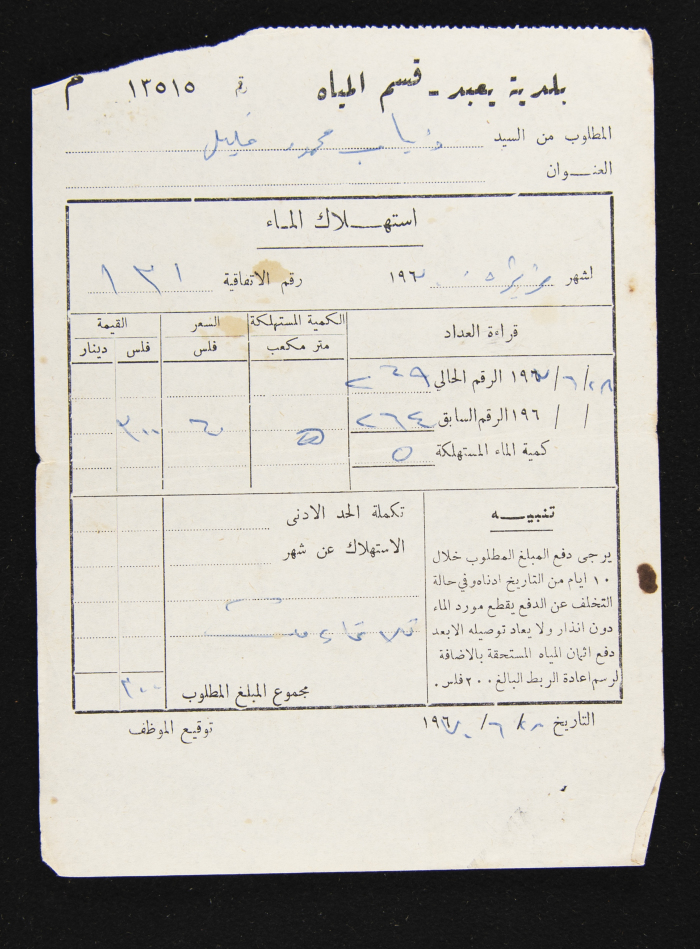 بلدية يعبد - قسم المياه رقم ١٣٥١٥ م
المطلوب من السيد ذياب محمود خليل
العنـوان
استهـلاك المـاء
لشهر ١٩٦ رقم الاتفاقية ١٣١
قراءة العداد الكمية المستهلكة السعر القيمة
متر مكعب فلس فلس دينار
٢٨/٦/١٩٦ الرقم الحالي ٢٦٩
/ / ١٩٦ الرقم السابق ٢٦٤
٥ ٦٠ ٣٠٠
كمية الماء المستهلكة ٥
تنبيـه
يرجى دفع المبلغ المطلوب خلال
١٠ ايام من التاريخ ادناه وفي حالة
التخلف عن الدفع يقطع مورد الماء
دون انذار ولا يعاد توصيله الا بعد
دفع اثمان المياه المستحقة بالاضافة
لرسم اعادة الربط البالغ ٢٠٠ فلس .
تكملة الحد الادنى
الاستهلاك عن شهر
مجموع المبلغ المطلوب ٣٠٠
التاريخ ٢٨/٦/١٩٦
توقيع الموظف